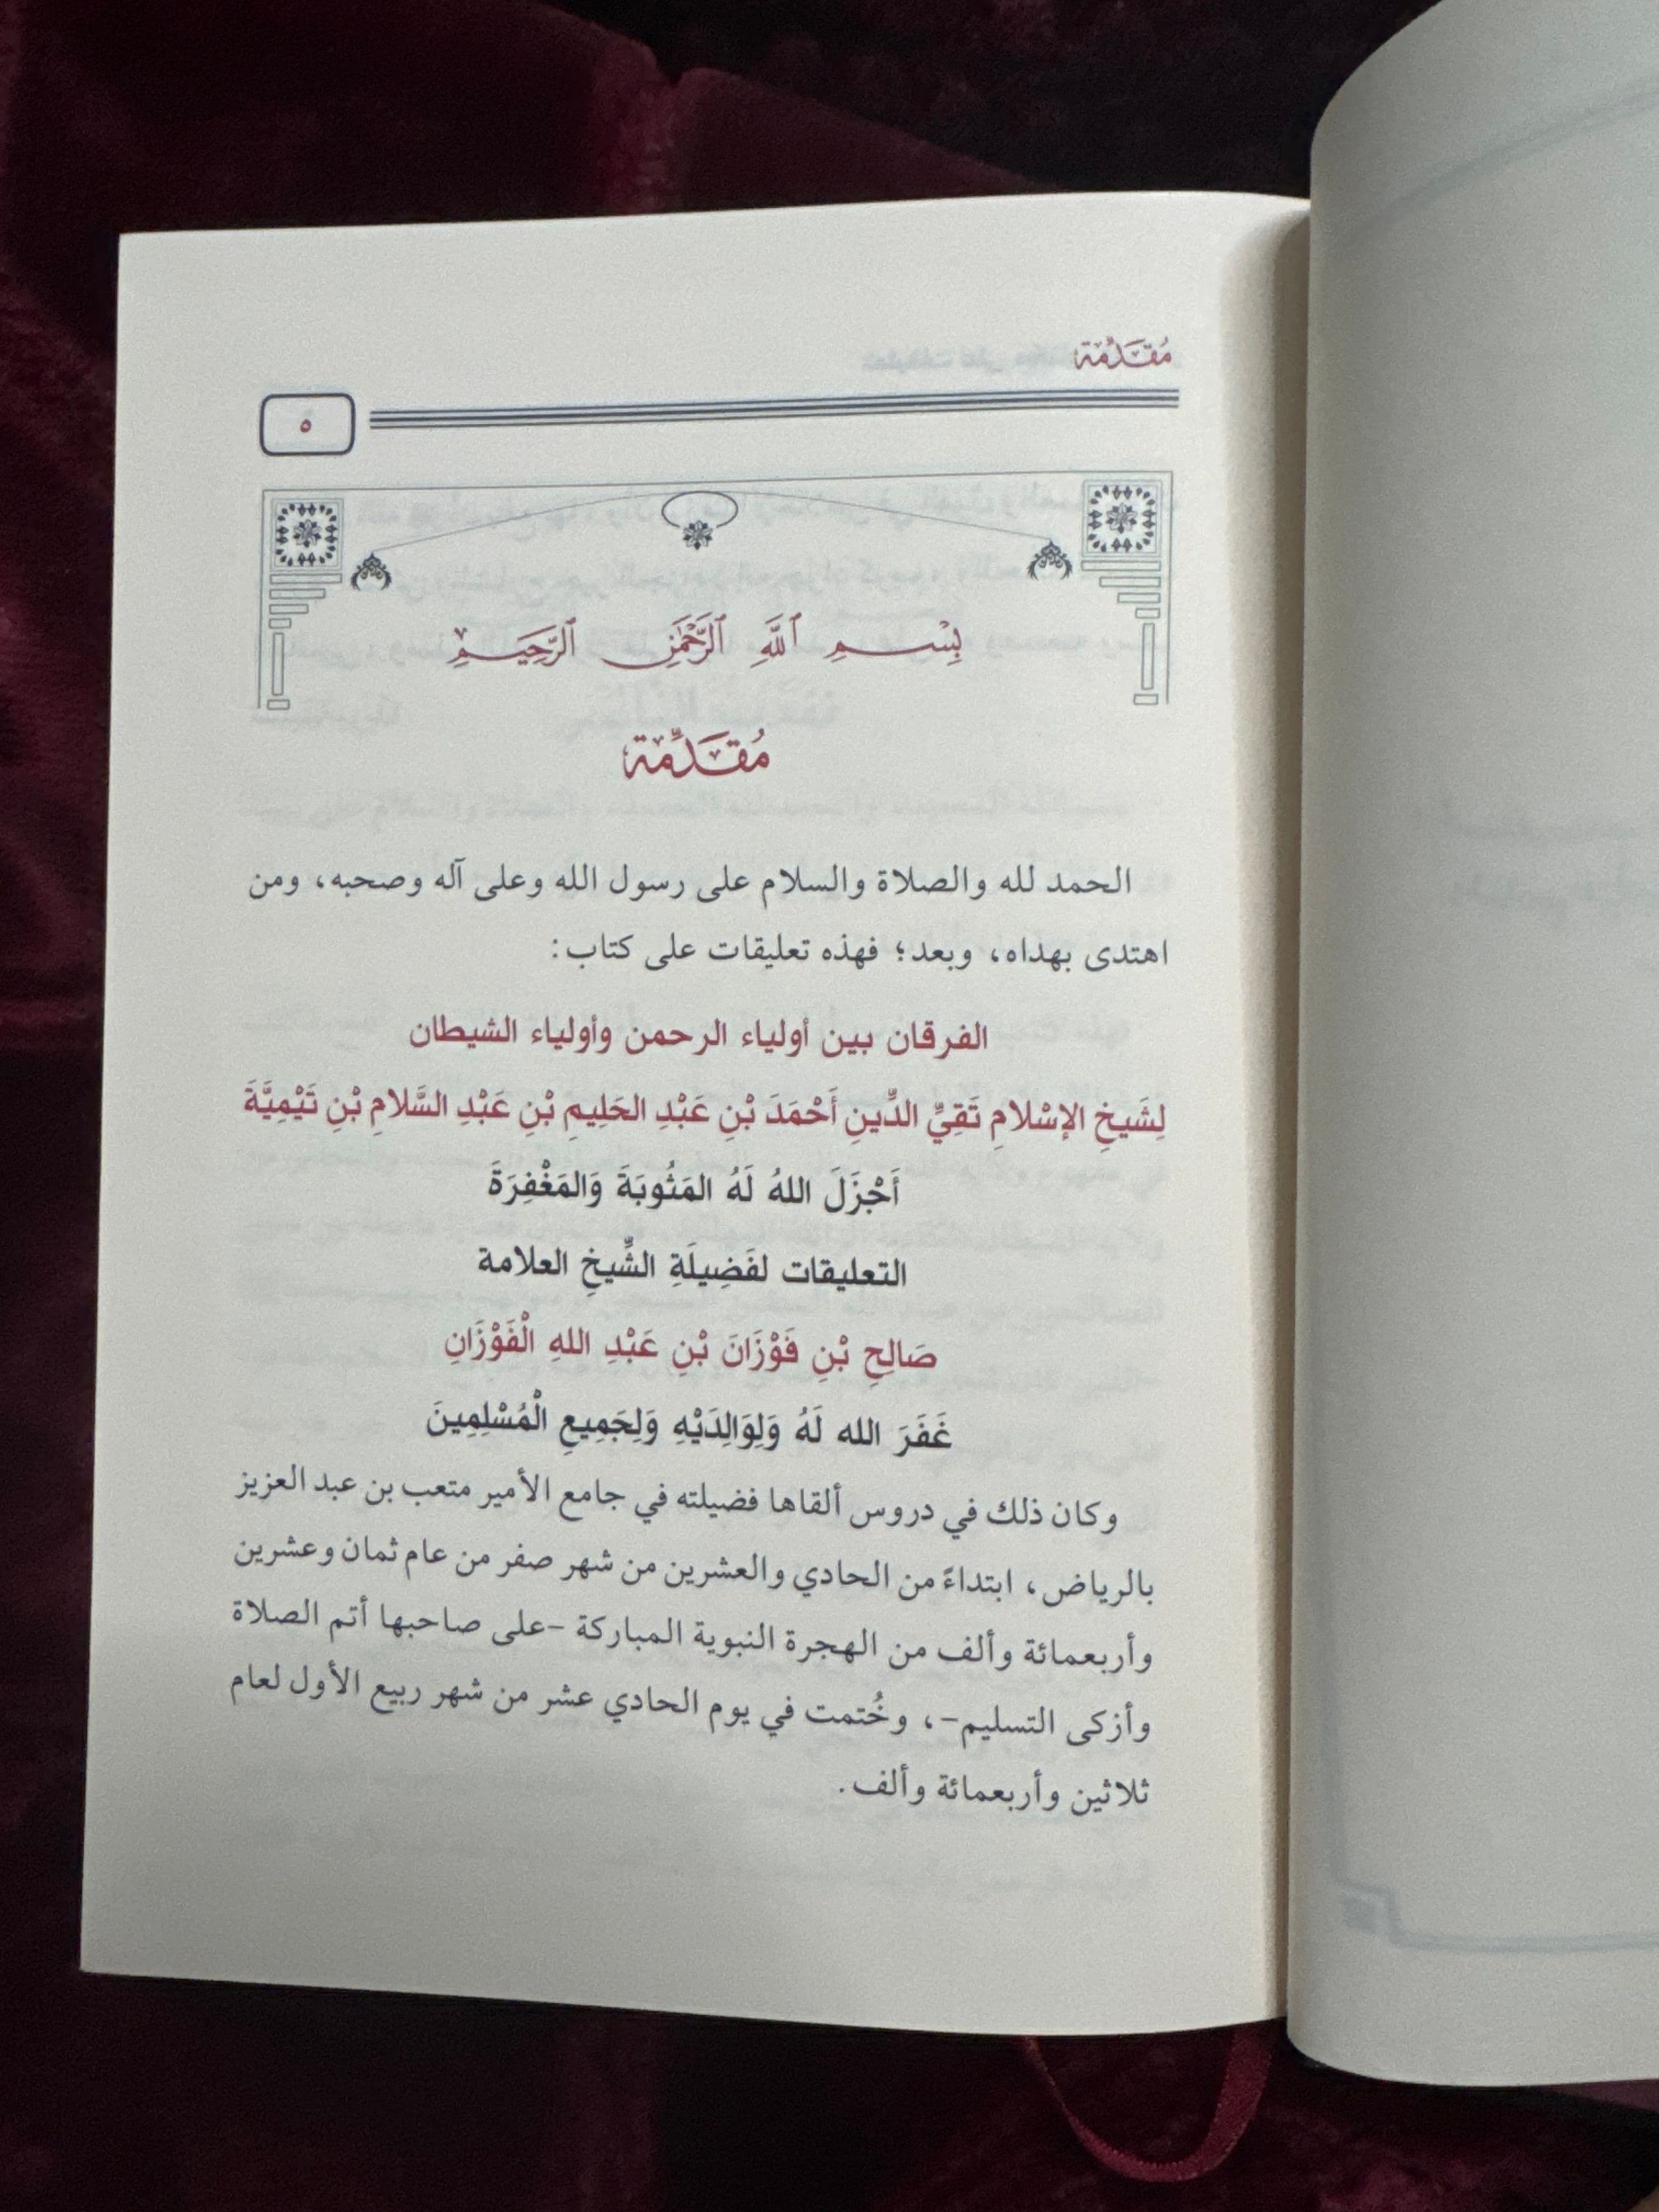 مُقَدِّمَة
٥
بِسْمِ ٱللَّهِ ٱلرَّحْمَٰنِ ٱلرَّحِيمِ
مُقَدِّمَة
الحمد لله والصلاة والسلام على رسول الله وعلى آله وصحبه، ومن
اهتدى بهداه، وبعد؛ فهذه تعليقات على كتاب:
الفرقان بين أولياء الرحمن وأولياء الشيطان
لِشَيخِ الإسْلامِ تَقِيِّ الدِّينِ أَحْمَدَ بْنِ عَبْدِ الحَلِيمِ بْنِ عَبْدِ السَّلامِ بْنِ تَيْمِيَّةَ
أَجْزَلَ اللهُ لَهُ المَثُوبَةَ وَالمَغْفِرَةَ
التعليقات لفَضِيلَةِ الشَّيخِ العلامة
صَالِحِ بْنِ فَوْزَانَ بْنِ عَبْدِ اللهِ الْفَوْزَانِ
غَفَرَ الله لَهُ وَلِوَالِدَيْهِ وَلِجَمِيعِ الْمُسْلِمِينَ
وكان ذلك في دروس ألقاها فضيلته في جامع الأمير متعب بن عبد العزيز
بالرياض، ابتداءً من الحادي والعشرين من شهر صفر من عام ثمان وعشرين
وأربعمائة وألف من الهجرة النبوية المباركة -على صاحبها أتم الصلاة
وأزكى التسليم-، وخُتمت في يوم الحادي عشر من شهر ربيع الأول لعام
ثلاثين وأربعمائة وألف.